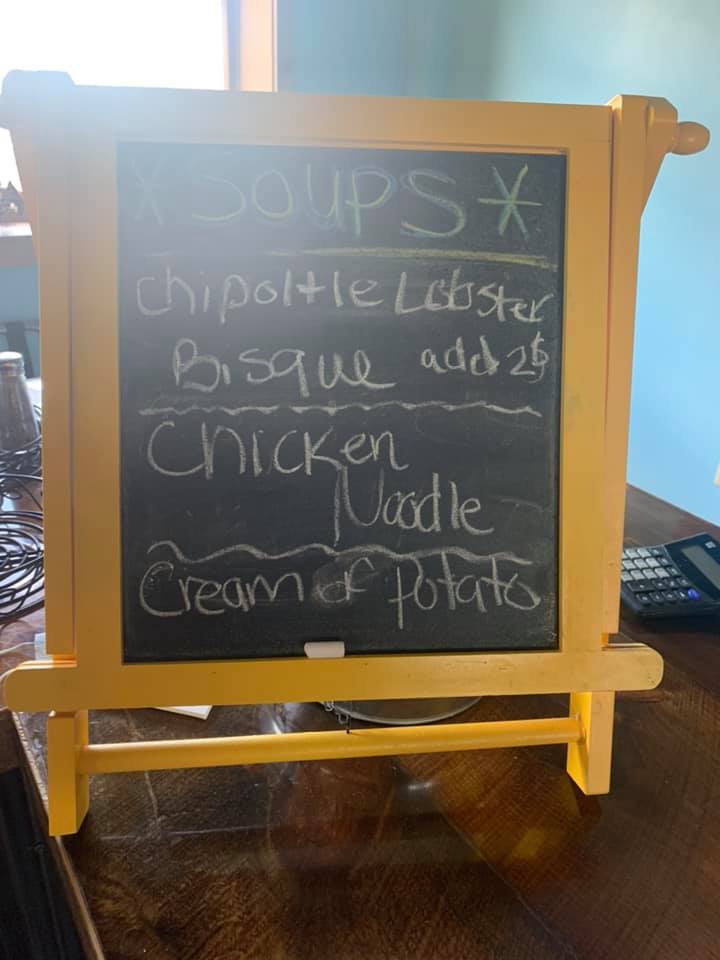 * SOUPS *
Chipoltle Lobster
Bisque add 2$
Chicken
Noodle
Cream of Potato